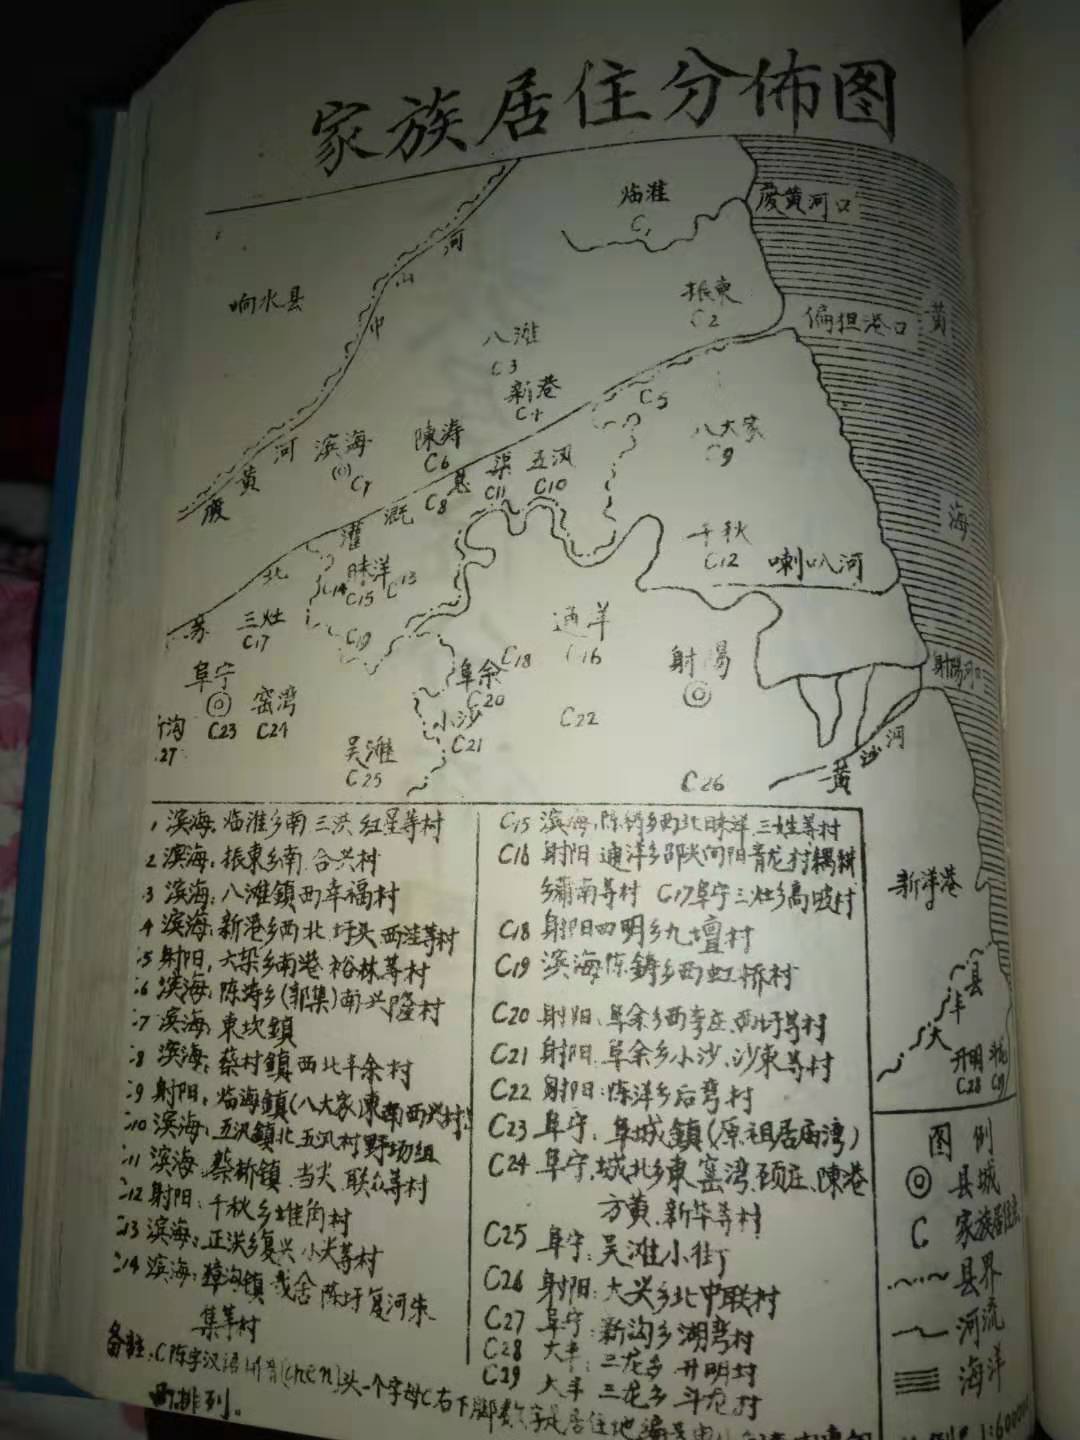 家族居住分佈图
临淮
C1
废黄河口
响水县
中山河
振東
C2
偏担港口
黄海
八滩
C3
新港
C4
C5
八大家
C9
滨海
C7
陳涛
C6
C8
渠
C11
五汛
C10
废黄河
苏北灌溉总渠
千秋
C12
喇叭河
C14
昧洋
C15
C13
三灶
C17
C19
通洋
C16
C18
射陽
射陽河口
阜宁
C23
窑湾
C24
阜余
C20
小沙
C21
C22
沟
27
吴滩
C25
C26
黄沙河
新洋港
大丰县
开明
C28
1 滨海：临淮乡南三洪 红星等村
2 滨海：振東乡南 合兴村
3 滨海：八滩鎮西幸福村
4 滨海：新港乡西北 圩头 西洼等村
5 射阳，六垛乡南港 裕林等村
6 滨海：陈涛乡(郭集)南兴隆村
7 滨海：東坎鎮
8 滨海：蔡村鎮西北丰余村
9 射阳，临海鎮(八大家)東南西兴村
10 滨海：五汛鎮北五汛村野场组
11 滨海 蔡桥镇 当尖 联众等村
12 射阳：千秋乡堆角村
13 滨海：正洪乡复兴 小尖等村
14 滨海：獐沟镇 戎舍 陈圩 复河朱
集等村
C15 滨海，陈铸乡西北昧洋 三姓等村
C16 射阳 通洋乡邵尖向阳青龙村耦耕
乡南等村 C17阜宁三灶乡高坡村
C18 射阳四明乡九壇村
C19 滨海陈鋳乡西虹桥村
C20 射阳：阜余乡西李庄 西圩等村
C21 射阳：阜余乡小沙 沙東等村
C22 射阳：陈洋乡后弯村
C23 阜宁、阜城鎮(原祖居庙湾)
C24 阜宁，城北乡東窑湾 顾庄、陳港
方黄、新华等村
C25 阜宁：吴滩小街
C26 射阳：大兴乡北中联村
C27 阜宁：新沟乡湖弯村
C28 大丰：三龙乡 开明村
C29 大丰 三龙乡 斗龙村
备注：C陈字汉语拼音(chen)头一个字母C右下脚数字是居住地编号由
排列。
图例
县城
C 家族居住点
县界
河流
海洋